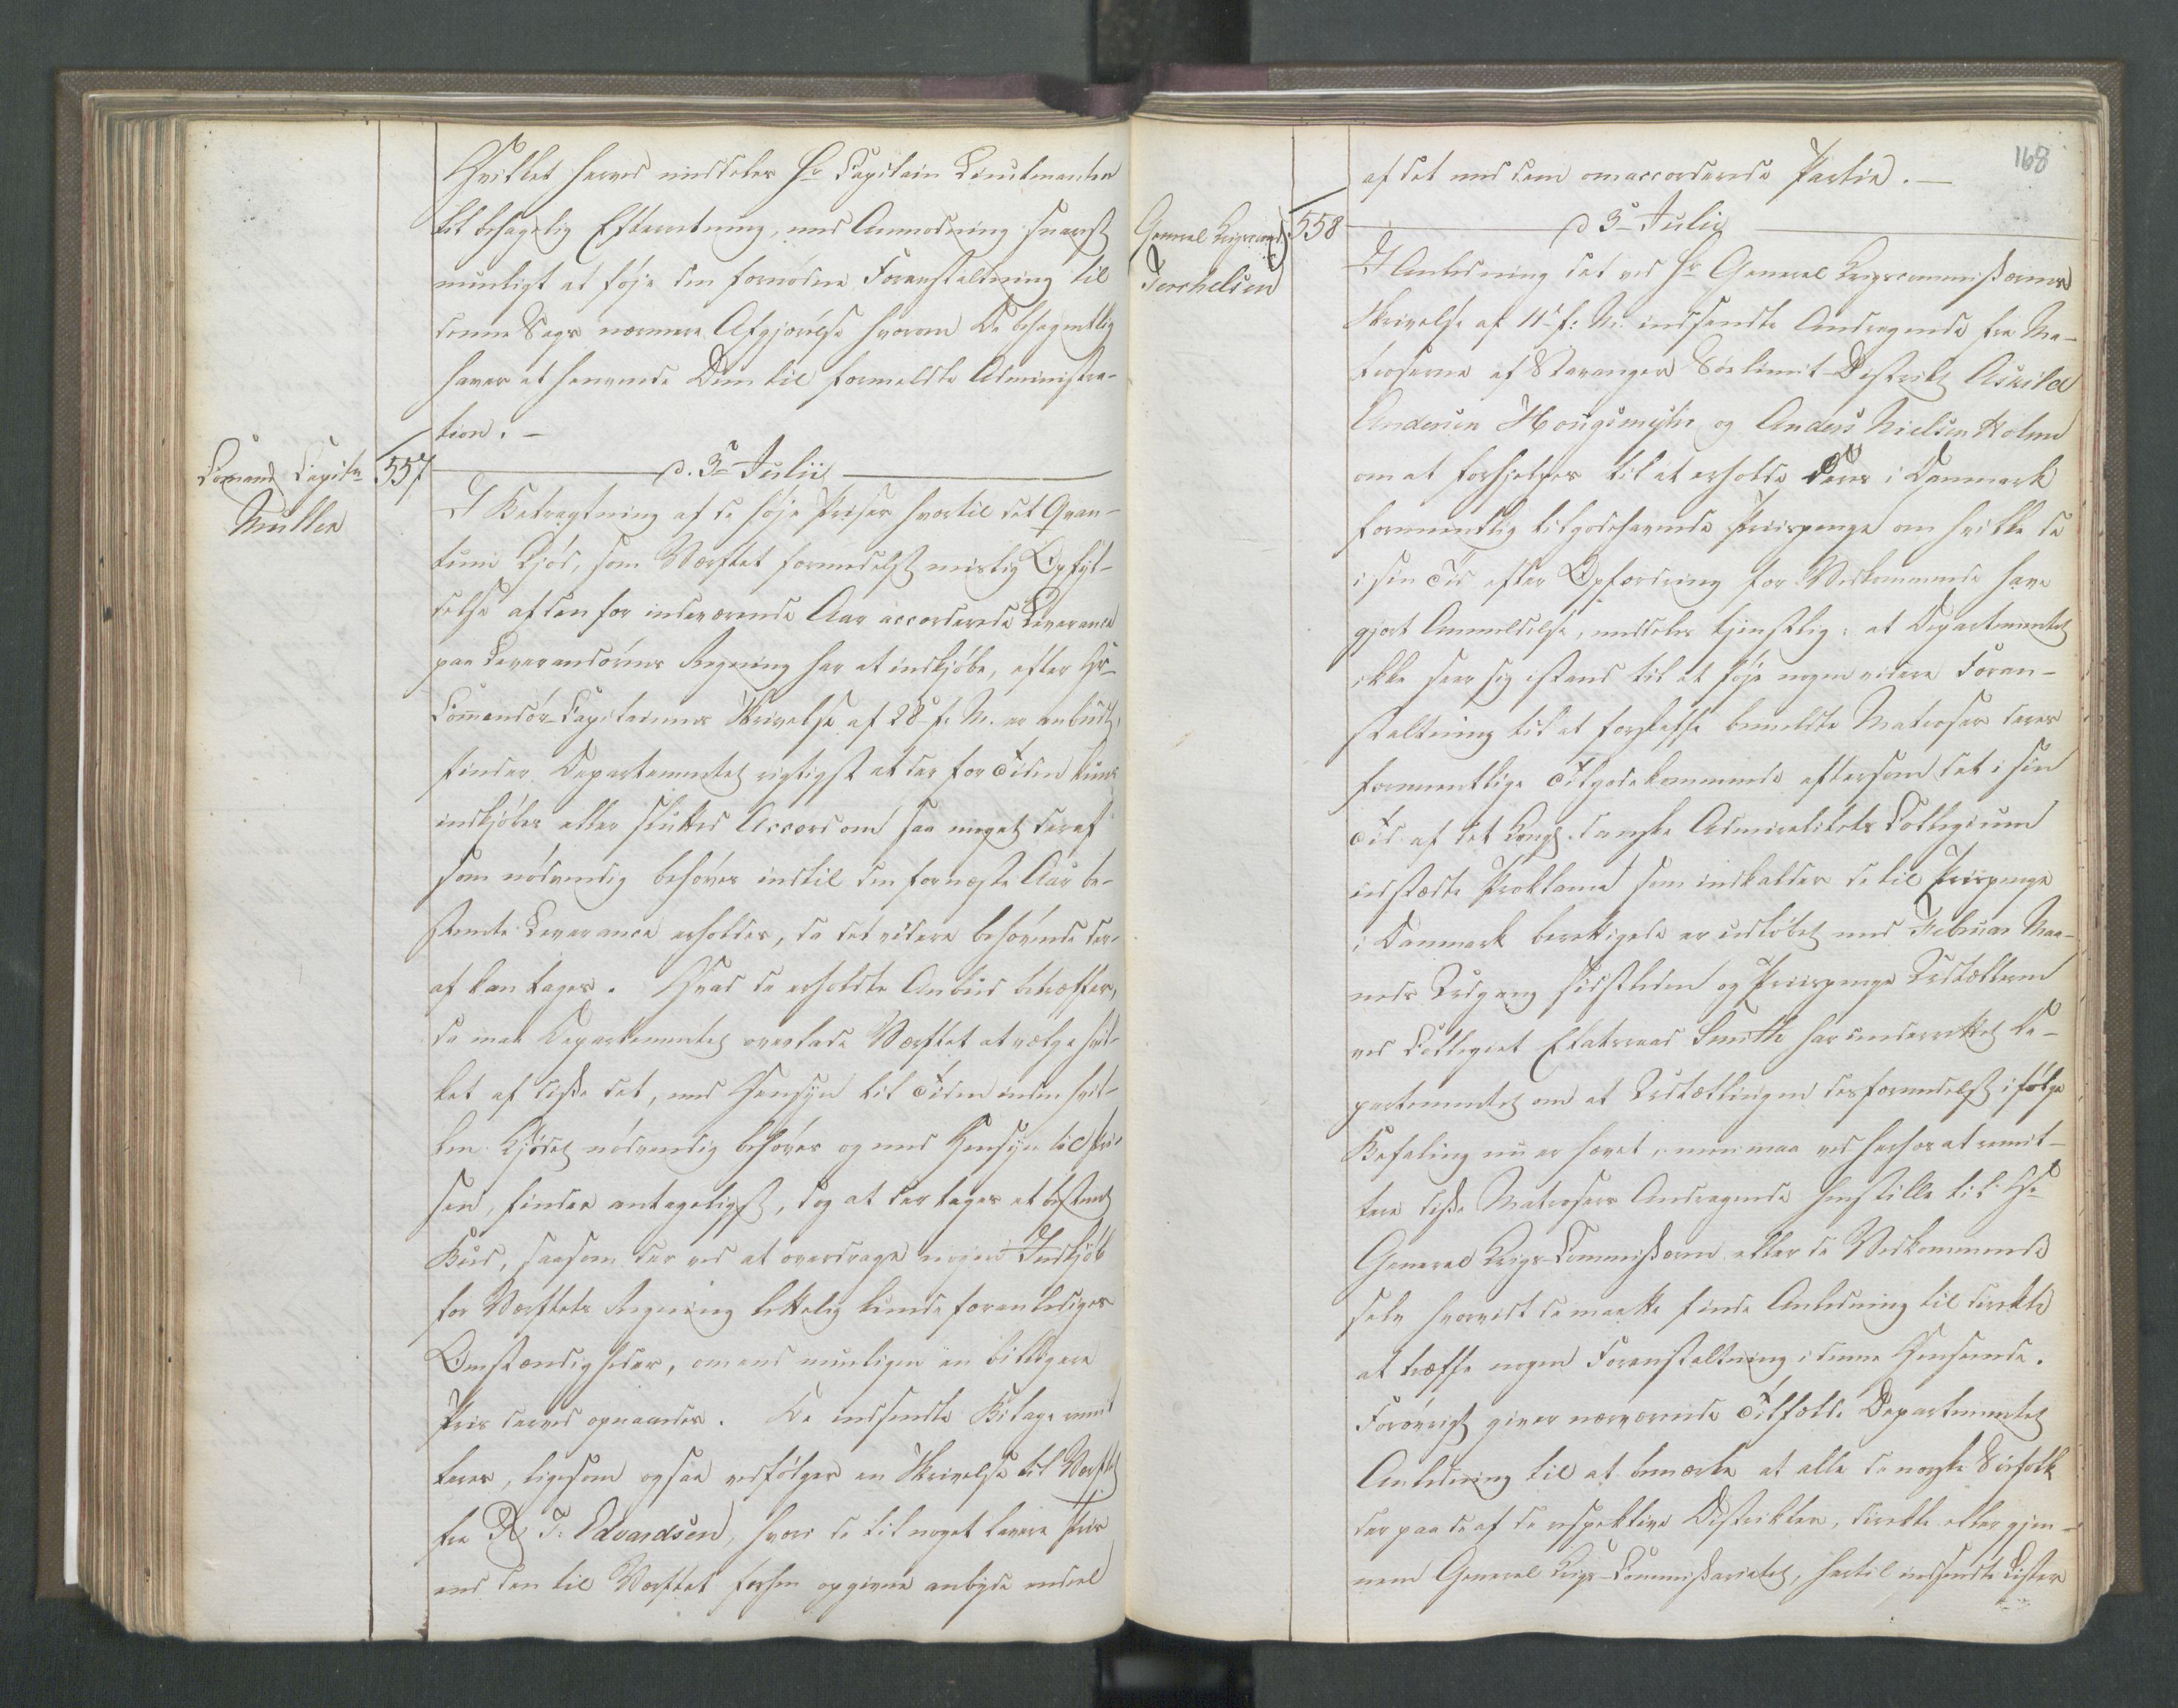 Hvilket herved meddeles Hr Capitain Lieutenanten
til behagelig Efterretning, med Anmodning snarest
mueligt at føje den fornødne Foranstaltning til
denne Sags nærmere Afgjørelse hvorom De behageligst
haver at henvende Dem til formeldte Administra-
tion. -
Comand Capitn
Müller
557
d. 3e Julii
I Betragtning af de høje Priser hvortil det Qvan-
tum Kjød, som Værftet formedelst mislig Opfyl-
delse af den for indeværende Aar accorderede Leverance
paa Leverandørens Regning har at indkjøbe, efter Hr
Commandør-Capitainens Skrivelse af 28de f. M. er anbudt,
finder Departementet rigtigst at der for Tiden kuns
indkjøbes eller sluttes Accord om saa meget deraf
som nødvendig behøves indtil den for næste Aar be-
stemte Leverance erholdes, da det videre behøvende der-
af kan tages. Hvad de erholdte Anbud betræffer,
da maa Departementet overlade Værftet at vælge hvil-
ket af disse det, med Hensyn til Tiden inden hvil-
ken Kjødet nødvendig behøves og med Hensyn til Pri-
sen, finder antageligst, dog at der tages et bestemt
Bud, saasom der ved at overdrage nogen Indkjøb
for Værftets Regning lettelig kunde foranlediges
Omstændigheder, om end mueligen en billigere
Priis derved opnaaedes. De indsendte Bilage remit
teres, ligesom ogsaa vedfølger en Skrivelse til Værftet
fra R J: Edvardsen, hvori de til noget lavere Priis
end den til Værftet forhen opgivne anbyde endeel
168
af det med dem omaccorderede Partie. -
General Krigscomd:
Torchelsen
558
d 3e Julii
I Anledning det ved Hr General Krigscommissairens
Skrivelse af 11te f: M. indsendte Andragende fra Ma-
troserne af Stavanger Sølimit-District Askild
Andersen Hougsmyhr og Anders Nielsen Holme
om at forhjelpes til at erholde deres i Danmark
formeentlig tilgodehavende Priispenge om hvilke de
i sin Tid efter Opfordring for Vedkommende have
gjort Anmeldelse, meddeles tjenstlig: at Departementet
ikke seer sig istand til at føje nogen videre Foran-
staltning til at forskaffe bemeldte Matroser deres
formeentlige Tilgodekommende eftersom det i sin
Tid af det Kongl. danske Admiralitets Collegium
udstædte Proklama som indkalder de til Priispenge
i Danmark berettigede er udløbet med Februar Maa-
neds Udgang sidstleden og Priispenge Udtælleren
ved Collegiet Etatsraad Smith har underrettet De-
partementet om at Udtællingen desformedelst ifølge
Befaling nu er hævet, men maa ved herhos at remit-
tere disse Matrosers Andragende henstille til Hr
General Krigs-Commissairen eller de Vedkommende
selv hvorvidt de maatte finde Anledning til direkte
at træffe nogen Foranstaltning i denne Henseende.
Forøvrigt giver nærværende Tilfælde Departementet
Anledning til at bemærke at alle de norske Søefolk
der paa de af de respektive Distrikter, direkte eller gjen-
nem General Krigs-Commissariatet, hertil indsendte Lister